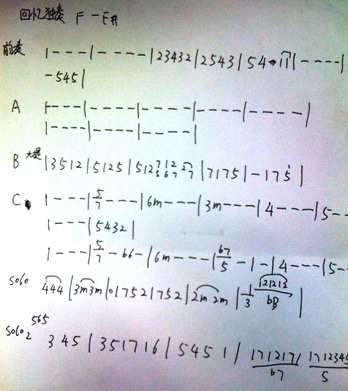 回忆独奏 F-E#
前奏 |----|----|23432|2543|54-11|----|
-545|
A |----|----|----|----|----|
|----|----|----|
B |3512|5125|512 |7175|-175|
C |1---|5/7---|6m---|3m---|4---|5--
|1---|5432|
|1---|5/7-b6-|6m---|b7/5-1-|4---|5--
solo 444|3m3m|01752|752|2m2m|1/3 121213/b3
solo2 565 345|351716|5451|171217/b7 1712345/5